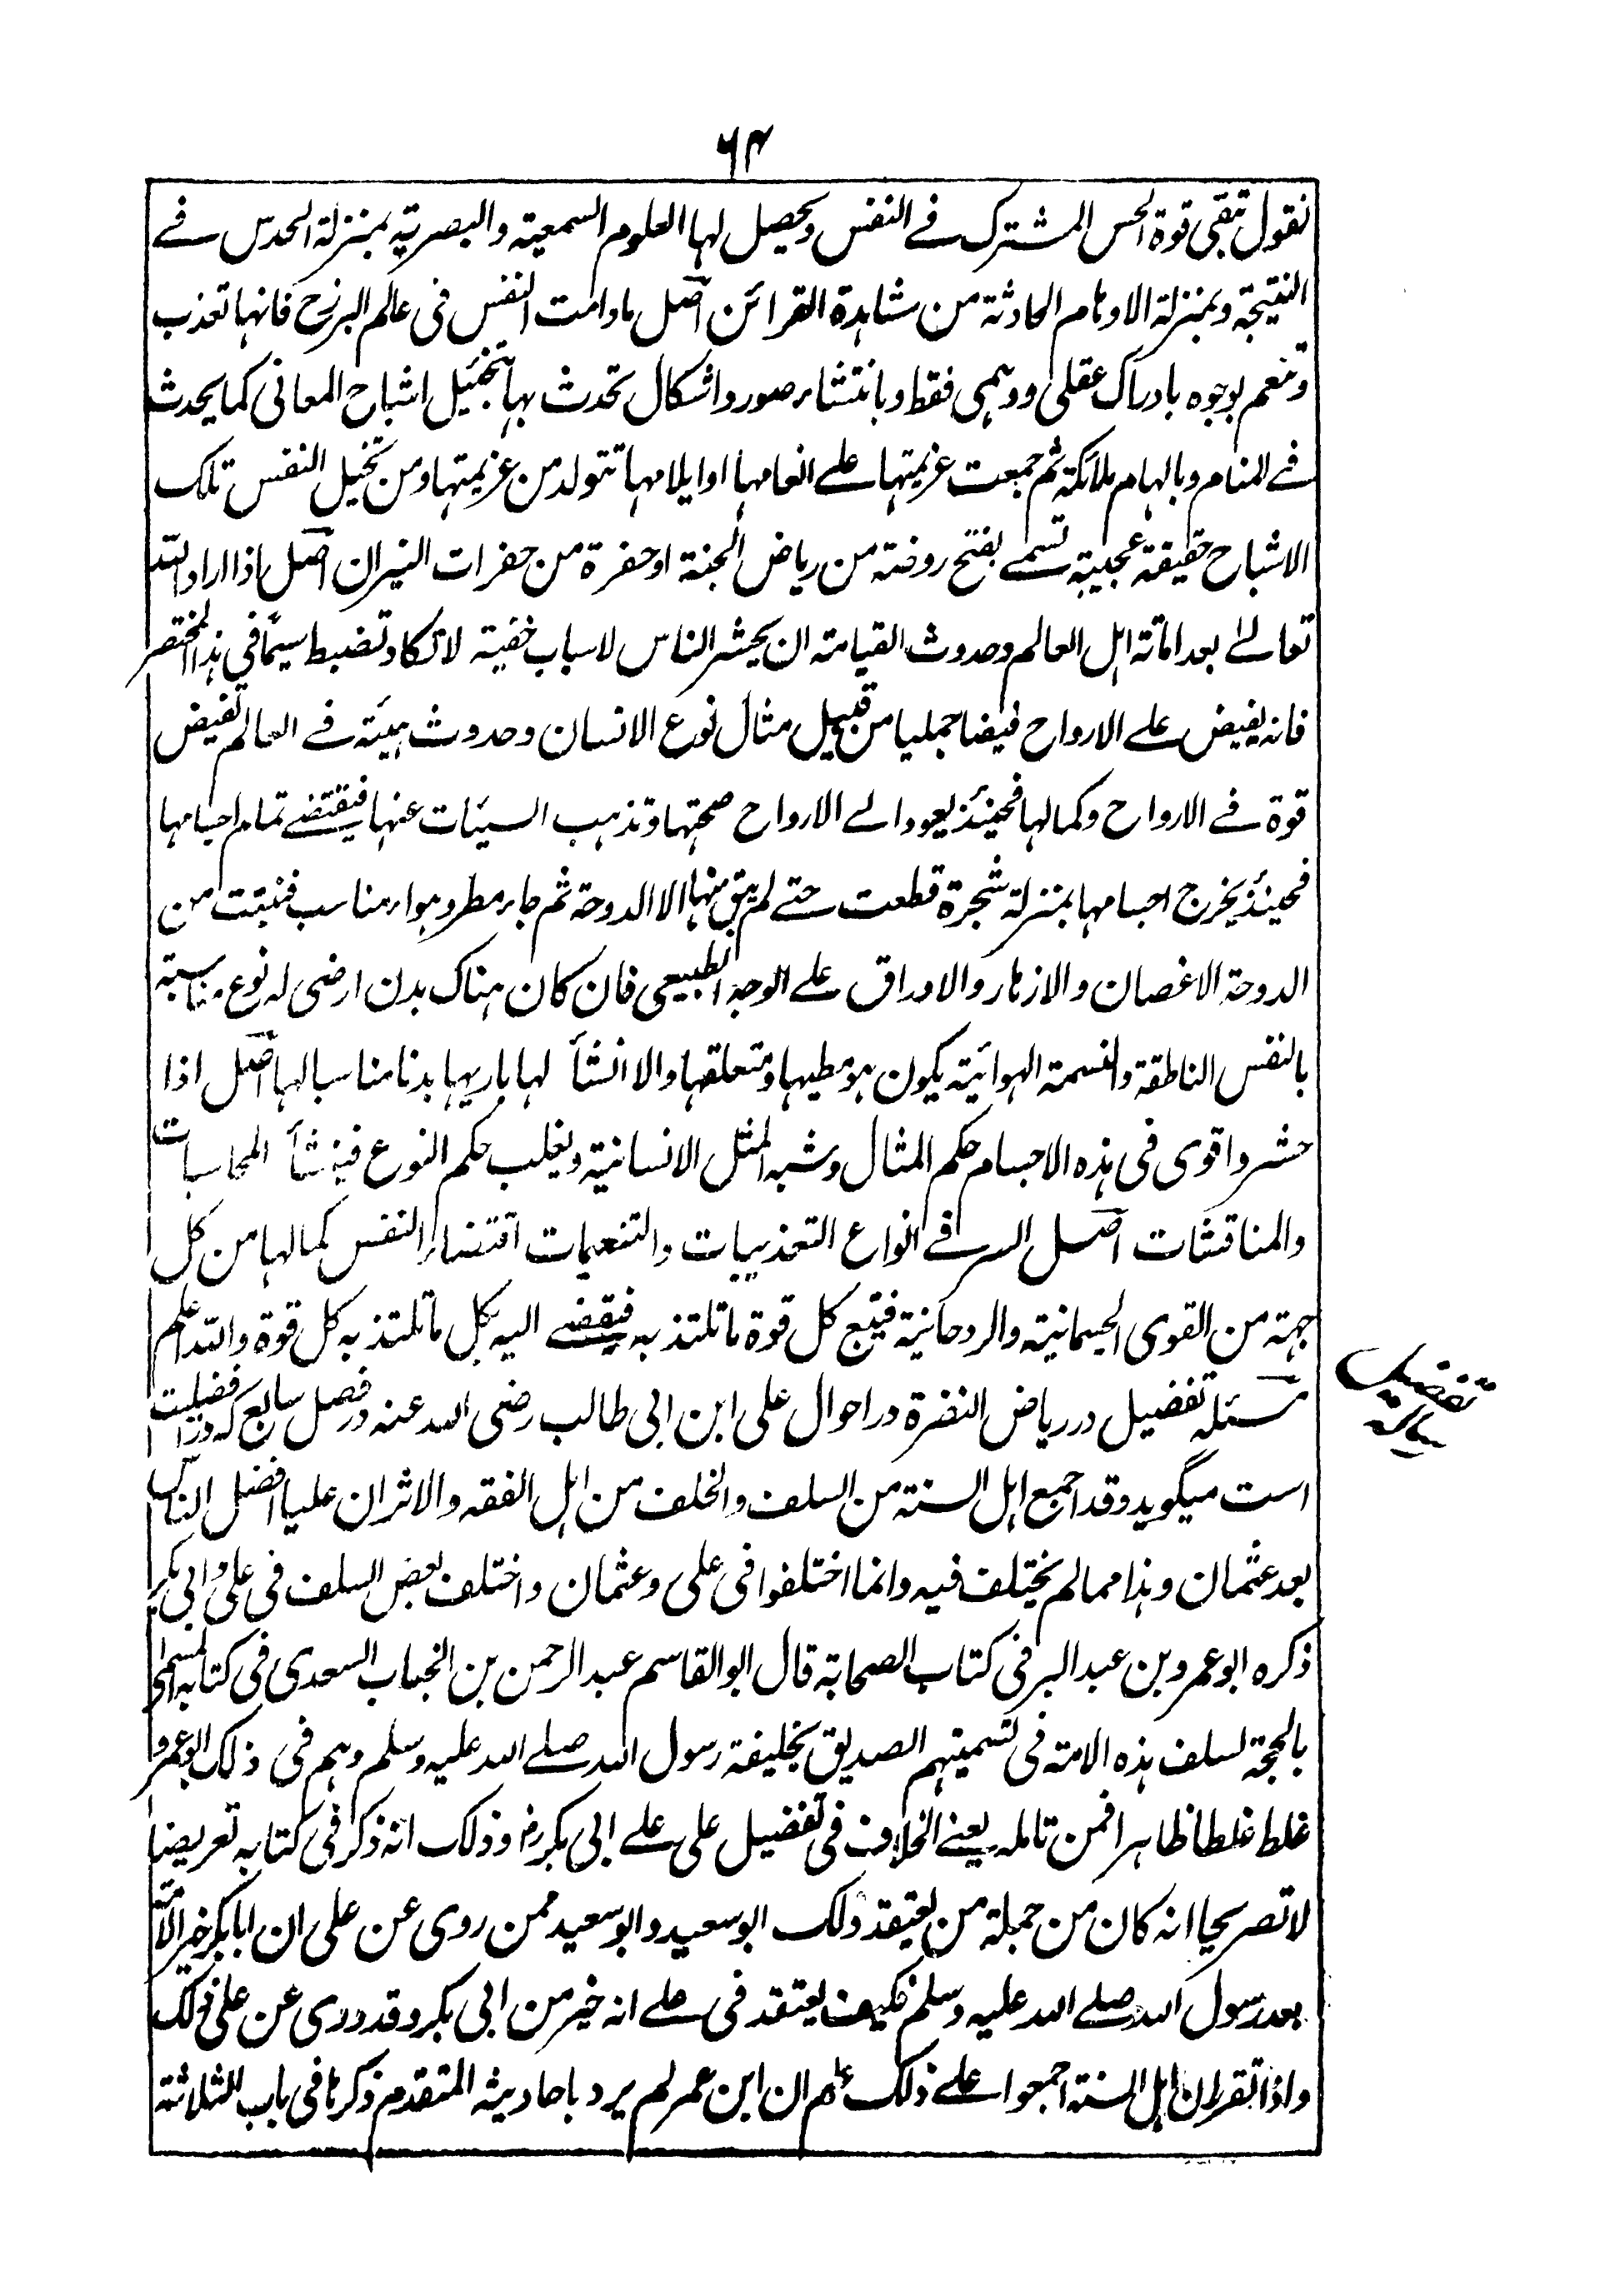 ۶۴
نقول تبقى قوة الحس المشترك في النفس ويحصل لها العلوم السمعية والبصرية بمنزلة الحدس في
النتيجة وبمنزلة الاوهام الحادثة من مشاهدة القرائن اصل مادامت النفس في عالم البرزخ فانها تعذب
وتنعم بوجوه بادراك عقلي ووهمي فقط وبانتشاء صور واشكال تحدث بها تتخيل اشباح المعاني كما يحدث
في المنام وبالهام ملائكة ثم جمعت عزيمتها على انعامها او ايلامها تتولد من عزيمتها ومن تخيل النفس تلك
الاشباح حقيقة عجيبة تسمى بفتح روضة من رياض الجنة او حفرة من حفرات النيران اصل اذا اراد الله
تعالى بعد اماتة اهل العالم وحدوث القيامة ان يحشر الناس لاسباب خفية لا تكاد تضبط سيما في هذا المختصر
فانه يفيض على الارواح فيضا جمليا من قبيل مثال نوع الانسان وحدوث هيئة في العالم تفيض
قوة في الارواح وكمالها فحينئذ يعود الى الارواح صحتها وتذهب السيئات عنها فيقتضي تمام اجسامها
فحينئذ يخرج اجسامها بمنزلة شجرة قطعت حتى لم يبق منها الا الدوحة ثم جاء مطر وهواء مناسب فنبتت من
الدوحة الاغصان والازهار والاوراق على الوجه الطبيعي فان كان هناك بدن ارضي له نوع مناسبة
بالنفس الناطقة والنسمة الهوائية يكون هو مطيها ومتعلقها والا انشأ لها باريها بدنا مناسبا لها اصل اذا
حشروا قوى في هذه الاجسام حكم المثال وشبه المثل الانسانية ويغلب حكم النوع فينشأ المحاسبات
والمناقشات اصل السر في انواع التعذيبات والتنعيمات اقتضاء النفس كمالها من كل
جهة من القوى الجسمانية والروحانية فتتبع كل قوة ما تلتذ به فيقضي اليه بكل ما تلتذ به كل قوة والله اعلم
مسئله تفضيل در رياض النضرة در احوال على ابن ابى طالب رضى الله عنه در فصل سابع كه در فضيلت
است ميگويد وقد اجمع اهل السنة من السلف والخلف من اهل الفقه والاثر ان عليا افضل الناس
بعد عثمان وهذا مما لم يختلف فيه وانما اختلفوا في علي وعثمان واختلف بعض السلف في علي وابي بكر
ذكره ابو عمرو بن عبد البر في كتاب الصحابة قال ابو القاسم عبد الرحمن بن الحباب السعدي في كتابه المسمى
بالحجة لسلف هذه الامة في تسميتهم الصديق بخليفة رسول الله صلى الله عليه وسلم وهم في ذلك ابو عمرو
غلط غلطا ظاهرا فمن تامله يعني الخلاف في تفضيل علي على ابي بكر رض وذلك انه ذكر في كتابه تعريضا
لا تصريحا انه كان من جملة من يعتقد ذلك ابو سعيد وابو سعيد ممن روى عن علي ان ابا بكر خير الامة
بعد رسول الله صلى الله عليه وسلم فكيف يعتقد في علي انه خير من ابي بكر وقد روى عن علي ذلك
واذا تقرر ان اهل السنة اجمعوا على ذلك علم ان ابن عمر لم يرد باحاديثه المتقدم ذكرها في باب الثلاثة
تفضيل